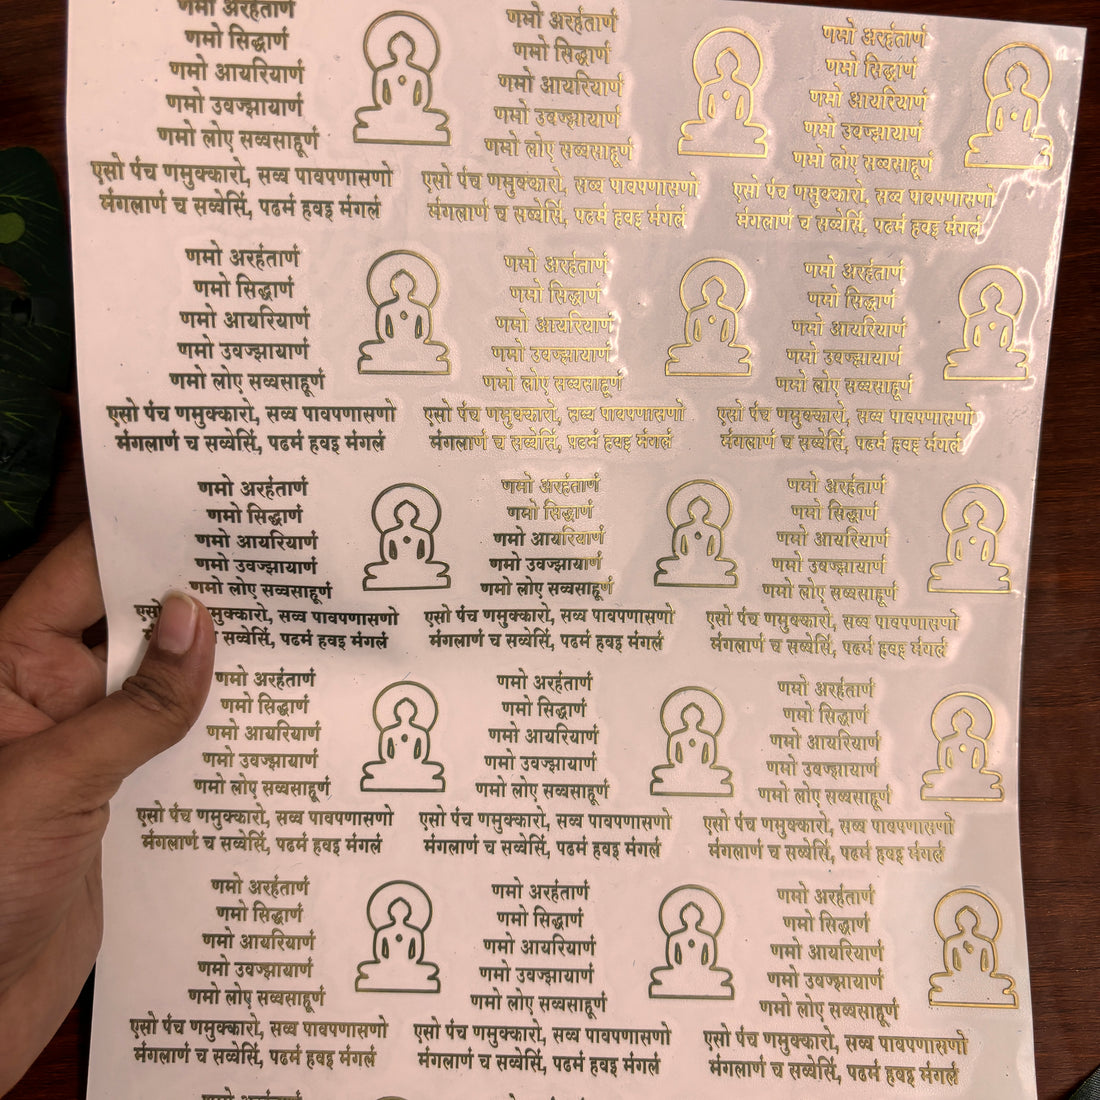 णमो अरहंताणं
णमो सिद्धाणं
णमो आयरियाणं
णमो उवज्झायाणं
णमो लोए सव्वसाहूणं
एसो पंच णमुक्कारो, सव्व पावपणासणो
मंगलाणं च सव्वेसिं, पढमं हवइ मंगलं
णमो अरहंताणं
णमो सिद्धाणं
णमो आयरियाणं
णमो उवज्झायाणं
णमो लोए सव्वसाहूणं
एसो पंच णमुक्कारो, सव्व पावपणासणो
मंगलाणं च सव्वेसिं, पढमं हवइ मंगलं
णमो अरहंताणं
णमो सिद्धाणं
णमो आयरियाणं
णमो उवज्झायाणं
णमो लोए सव्वसाहूणं
एसो पंच णमुक्कारो, सव्व पावपणासणो
मंगलाणं च सव्वेसिं, पढमं हवइ मंगलं
णमो अरहंताणं
णमो सिद्धाणं
णमो आयरियाणं
णमो उवज्झायाणं
णमो लोए सव्वसाहूणं
एसो पंच णमुक्कारो, सव्व पावपणासणो
मंगलाणं च सव्वेसिं, पढमं हवइ मंगलं
णमो अरहंताणं
णमो सिद्धाणं
णमो आयरियाणं
णमो उवज्झायाणं
णमो लोए सव्वसाहूणं
एसो पंच णमुक्कारो, सव्व पावपणासणो
मंगलाणं च सव्वेसिं, पढमं हवइ मंगलं
णमो अरहंताणं
णमो सिद्धाणं
णमो आयरियाणं
णमो उवज्झायाणं
णमो लोए सव्वसाहूणं
एसो पंच णमुक्कारो, सव्व पावपणासणो
मंगलाणं च सव्वेसिं, पढमं हवइ मंगलं
णमो अरहंताणं
णमो सिद्धाणं
णमो आयरियाणं
णमो उवज्झायाणं
णमो लोए सव्वसाहूणं
एसो सव्व पावपणासणो
सव्वेसिं, पढमं हवइ मंगलं
णमो अरहंताणं
णमो सिद्धाणं
णमो आयरियाणं
णमो उवज्झायाणं
णमो लोए सव्वसाहूणं
एसो पंच णमुक्कारो, सव्व पावपणासणो
मंगलाणं च सव्वेसिं, पढमं हवइ मंगलं
णमो अरहंताणं
णमो सिद्धाणं
णमो आयरियाणं
णमो उवज्झायाणं
णमो लोए सव्वसाहूणं
एसो पंच णमुक्कारो, सव्व पावपणासणो
मंगलाणं च सव्वेसिं, पढमं हवइ मंगलं
णमो अरहंताणं
णमो सिद्धाणं
णमो आयरियाणं
णमो उवज्झायाणं
णमो लोए सव्वसाहूणं
एसो पंच णमुक्कारो, सव्व पावपणासणो
मंगलाणं च सव्वेसिं, पढमं हवइ मंगलं
णमो अरहंताणं
णमो सिद्धाणं
णमो आयरियाणं
णमो उवज्झायाणं
णमो लोए सव्वसाहूणं
एसो पंच णमुक्कारो, सव्व पावपणासणो
मंगलाणं च सव्वेसिं, पढमं हवइ मंगलं
णमो अरहंताणं
णमो सिद्धाणं
णमो आयरियाणं
णमो उवज्झायाणं
णमो लोए सव्वसाहूणं
एसो पंच णमुक्कारो, सव्व पावपणासणो
मंगलाणं च सव्वेसिं, पढमं हवइ मंगलं
णमो अरहंताणं
णमो सिद्धाणं
णमो आयरियाणं
णमो उवज्झायाणं
णमो लोए सव्वसाहूणं
एसो पंच णमुक्कारो, सव्व पावपणासणो
मंगलाणं च सव्वेसिं, पढमं हवइ मंगलं
णमो अरहंताणं
णमो सिद्धाणं
णमो आयरियाणं
णमो उवज्झायाणं
णमो लोए सव्वसाहूणं
एसो पंच णमुक्कारो, सव्व पावपणासणो
मंगलाणं च सव्वेसिं, पढमं हवइ मंगलं
णमो अरहंताणं
णमो सिद्धाणं
णमो आयरियाणं
णमो उवज्झायाणं
णमो लोए सव्वसाहूणं
एसो पंच णमुक्कारो, सव्व पावपणासणो
मंगलाणं च सव्वेसिं, पढमं हवइ मंगलं